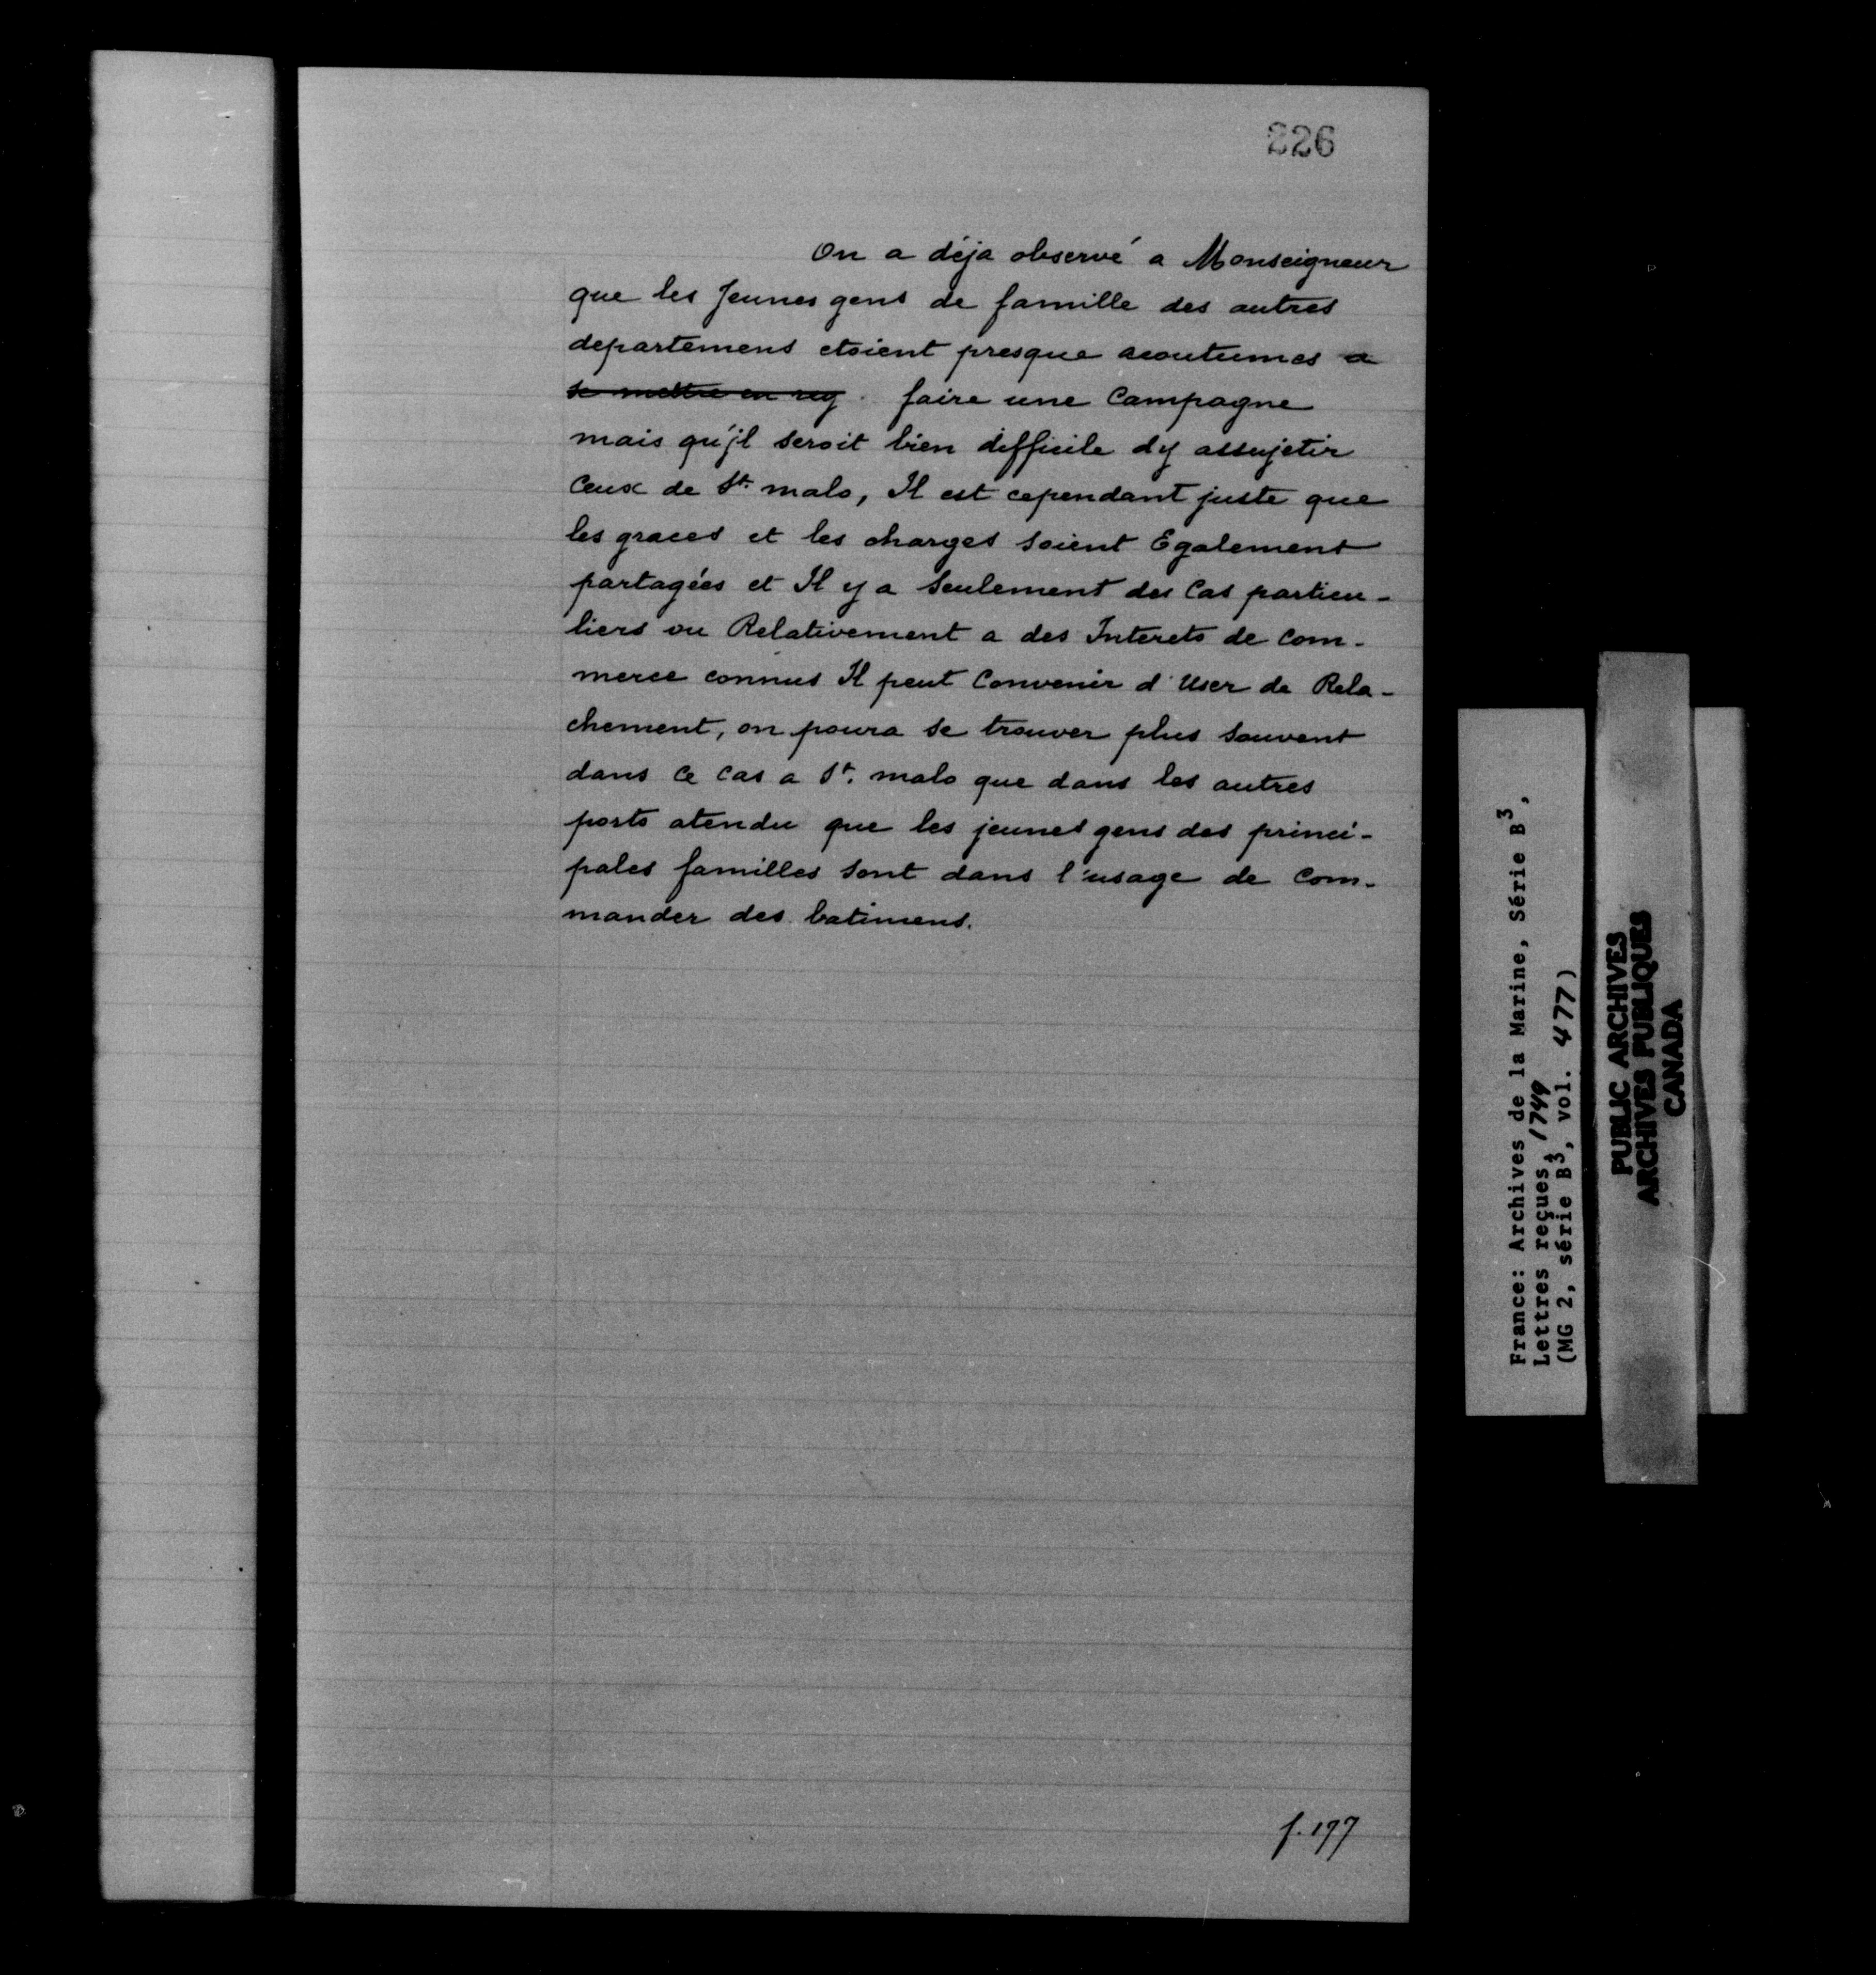 226
On a déja observé a Monseigneur
que les Jeunes gens de famille des autres
departemens etoient presque acoutumes a
se mettre en reg. faire une Campagne
mais qu'jl seroit bien difficile dy assujetir
Ceux de St. malo, Il est cependant juste que
les graces et les charges soient Egalement
partagées et Il y a seulement des Cas particu-
liers ou Relativement a des Interets de Com-
merce connus Il peut Convenir d'User de Rela-
chement, on poura se trouver plus souvent
dans ce cas a St. malo que dans les autres
ports atendu que les jeunes gens des princi-
pales familles sont dans l'usage de Com-
mander des batimens.
f. 197
France: Archives de la Marine, Série B3,
Lettres reçues, 1749
(MG 2, série B3, vol. 477)
PUBLIC ARCHIVES
ARCHIVES PUBLIQUES
CANADA